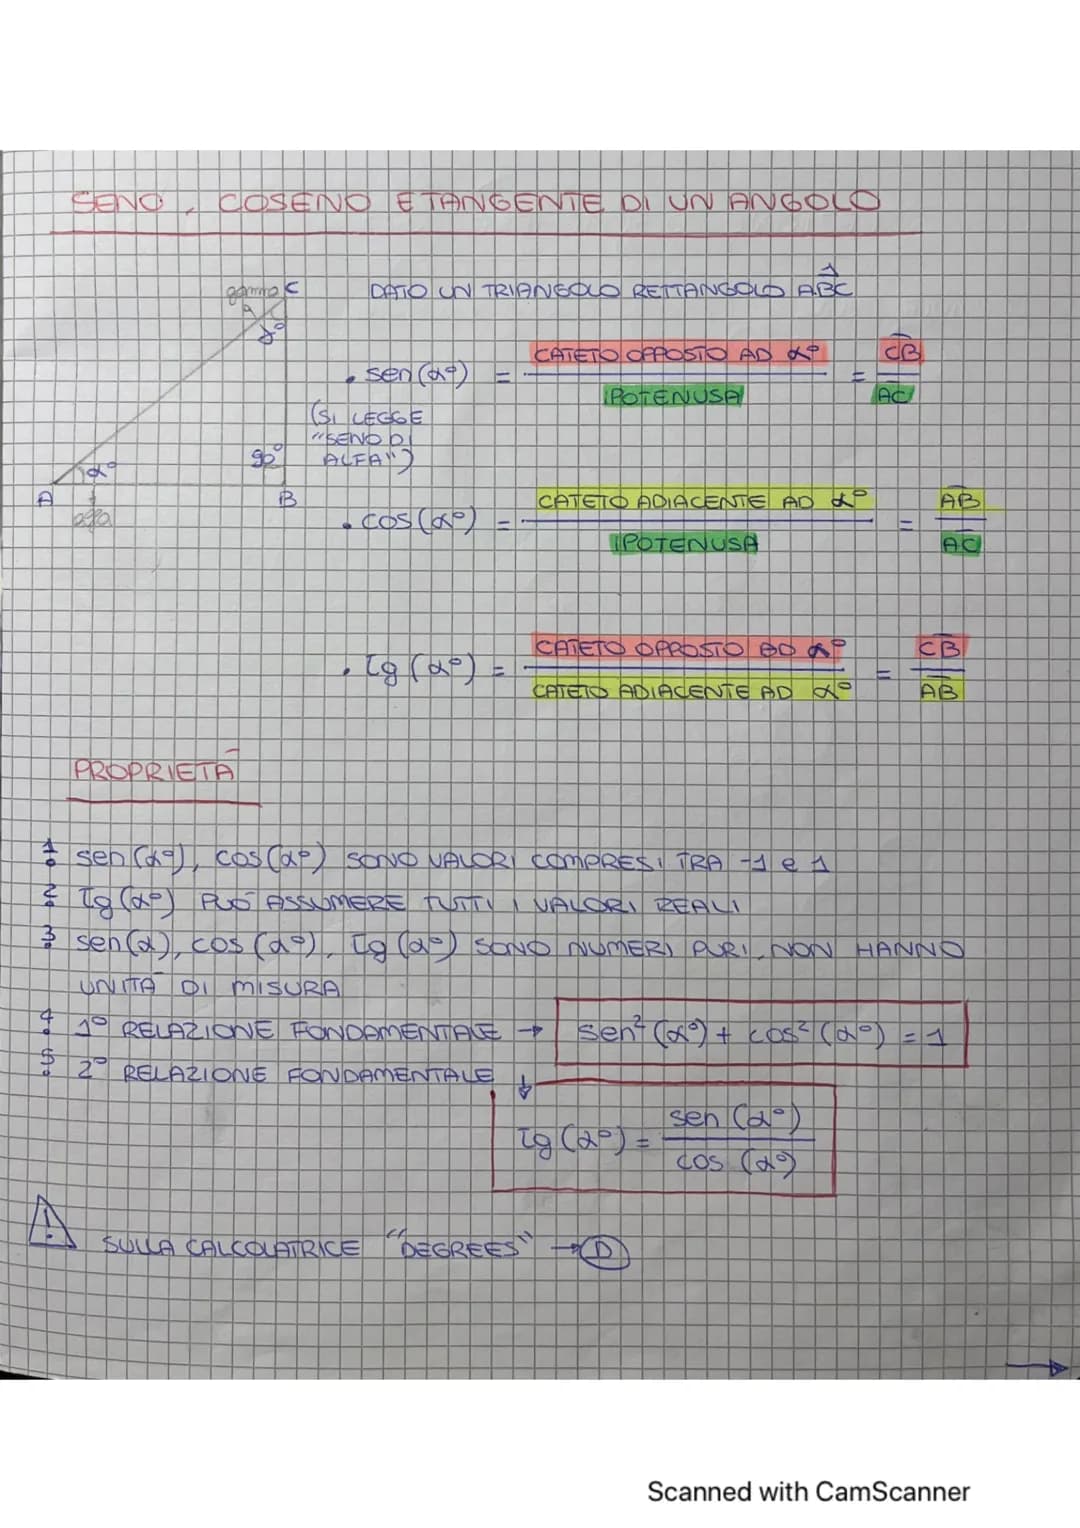 SENO, COSENO E TANGENTE DI UN ANGOLO
gamma C
DATO UN TRIANGOLO RETTANGOLO ABC
γ°
• sen(α°) = CATETO OPPOSTO AD α° / IPOTENUSA = CB / AC
(SI LEGGE
"SENO DI
ALFA")
90°
α°
A
B
alfa
• cos(α°) = CATETO ADIACENTE AD α° / IPOTENUSA = AB / AC
• tg(α°) = CATETO OPPOSTO AD α° / CATETO ADIACENTE AD α° = CB / AB
PROPRIETÀ
1. sen(α°), cos(α°) SONO VALORI COMPRESI TRA -1 e 1
2. tg(α°) PUÒ ASSUMERE TUTTI I VALORI REALI
3. sen(α), cos(α°), tg(α°) SONO NUMERI PURI, NON HANNO
UNITÀ DI MISURA
4. 1° RELAZIONE FONDAMENTALE → sen²(α°) + cos²(α°) = 1
5. 2° RELAZIONE FONDAMENTALE ↓
tg(α°) = sen(α°) / cos(α°)
! SULLA CALCOLATRICE "DEGREES" → D
→
Scanned with CamScanner